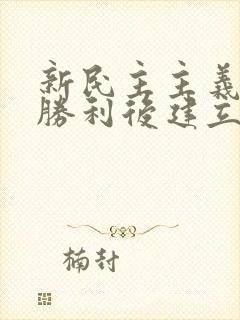 新民主主義
勝利後建立
楠封